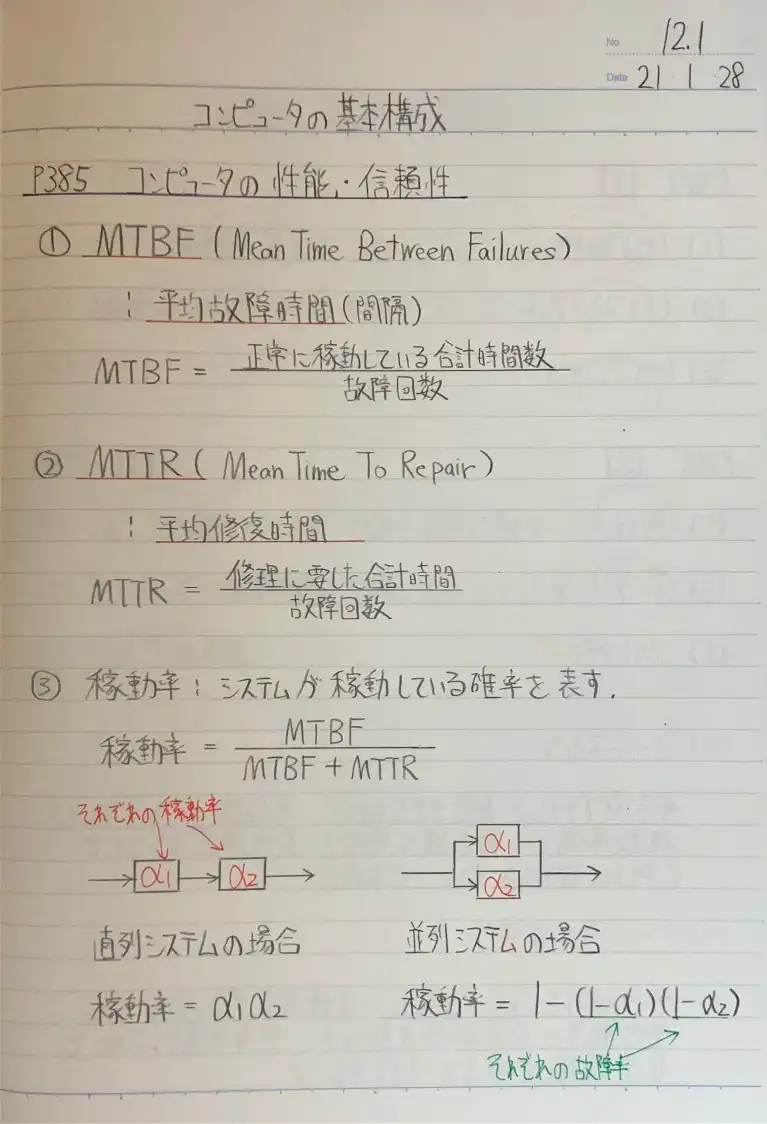 No 12.1
Date 21 1 28
コンピュータの基本構成
P385 コンピュータの性能・信頼性
① MTBF (Mean Time Between Failures)
: 平均故障時間(間隔)
MTBF = 正常に稼動している合計時間数
故障回数
② MTTR ( Mean Time To Repair)
: 平均修復時間
MTTR = 修理に要した合計時間
故障回数
③ 稼動率 : システムが稼動している確率を表す.
稼動率 = MTBF
MTBF + MTTR
それぞれの稼動率
α1 α2
α1
α2
直列システムの場合
並列システムの場合
稼動率 = α1 α2
稼動率 = 1-(1-α1)(1-α2)
それぞれの故障率